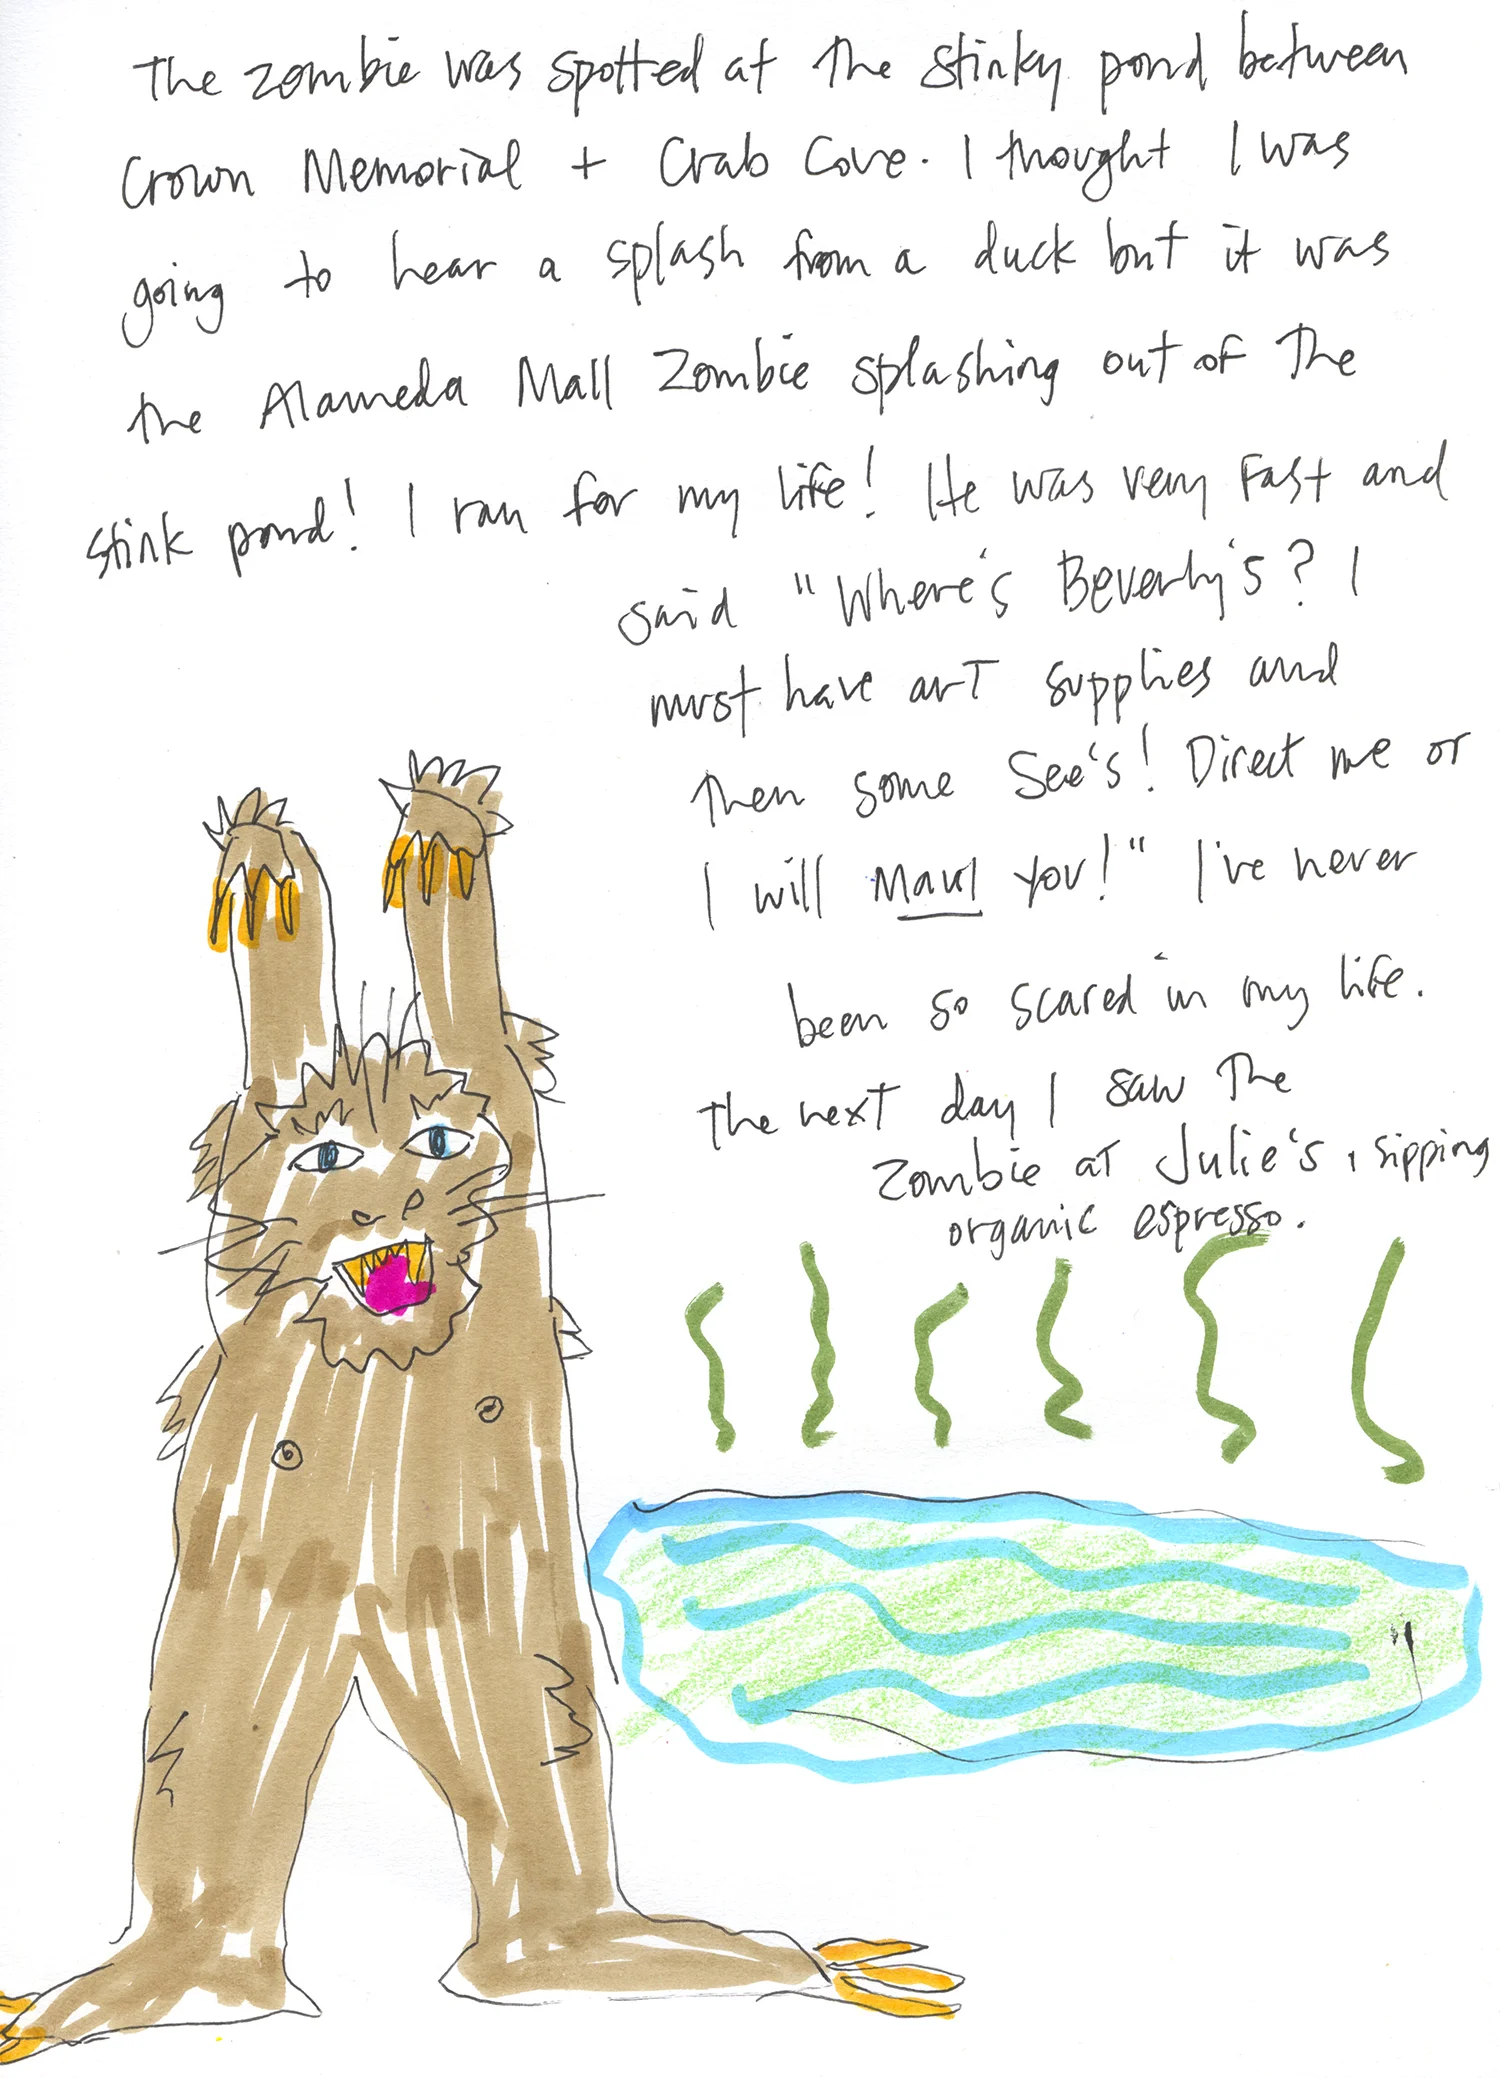 The zombie was spotted at the stinky pond between
Crown Memorial + Crab Cove. I thought I was
going to hear a splash from a duck but it was
the Alameda Mall Zombie splashing out of the
stink pond! I ran for my life! He was very fast and
said "Where's Beverly's? I
must have art supplies and
then some See's! Direct me or
I will Maul you!" I've never
been so scared in my life.
The next day I saw the
Zombie at Julie's, sipping
organic espresso.